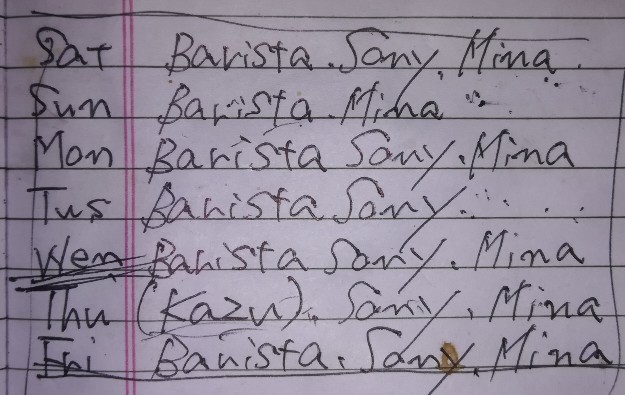 Sat Barista. Sony. Mina.
Sun Barista. Mina
Mon Barista Sony. Mina
Tus Barista Sony.
Wen Barista Sony. Mina
Thu (Kazu). Sony. Mina
Fri Barista. Sony. Mina